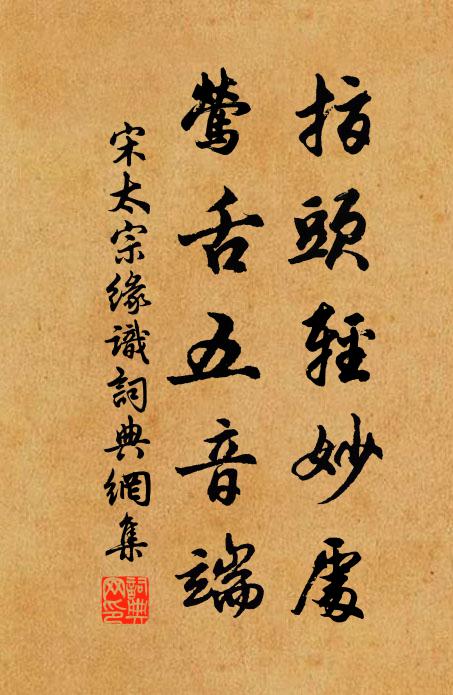 指頭輕妙處
鶯舌五音端
宋太宗緣識詞典網集
詞典網印